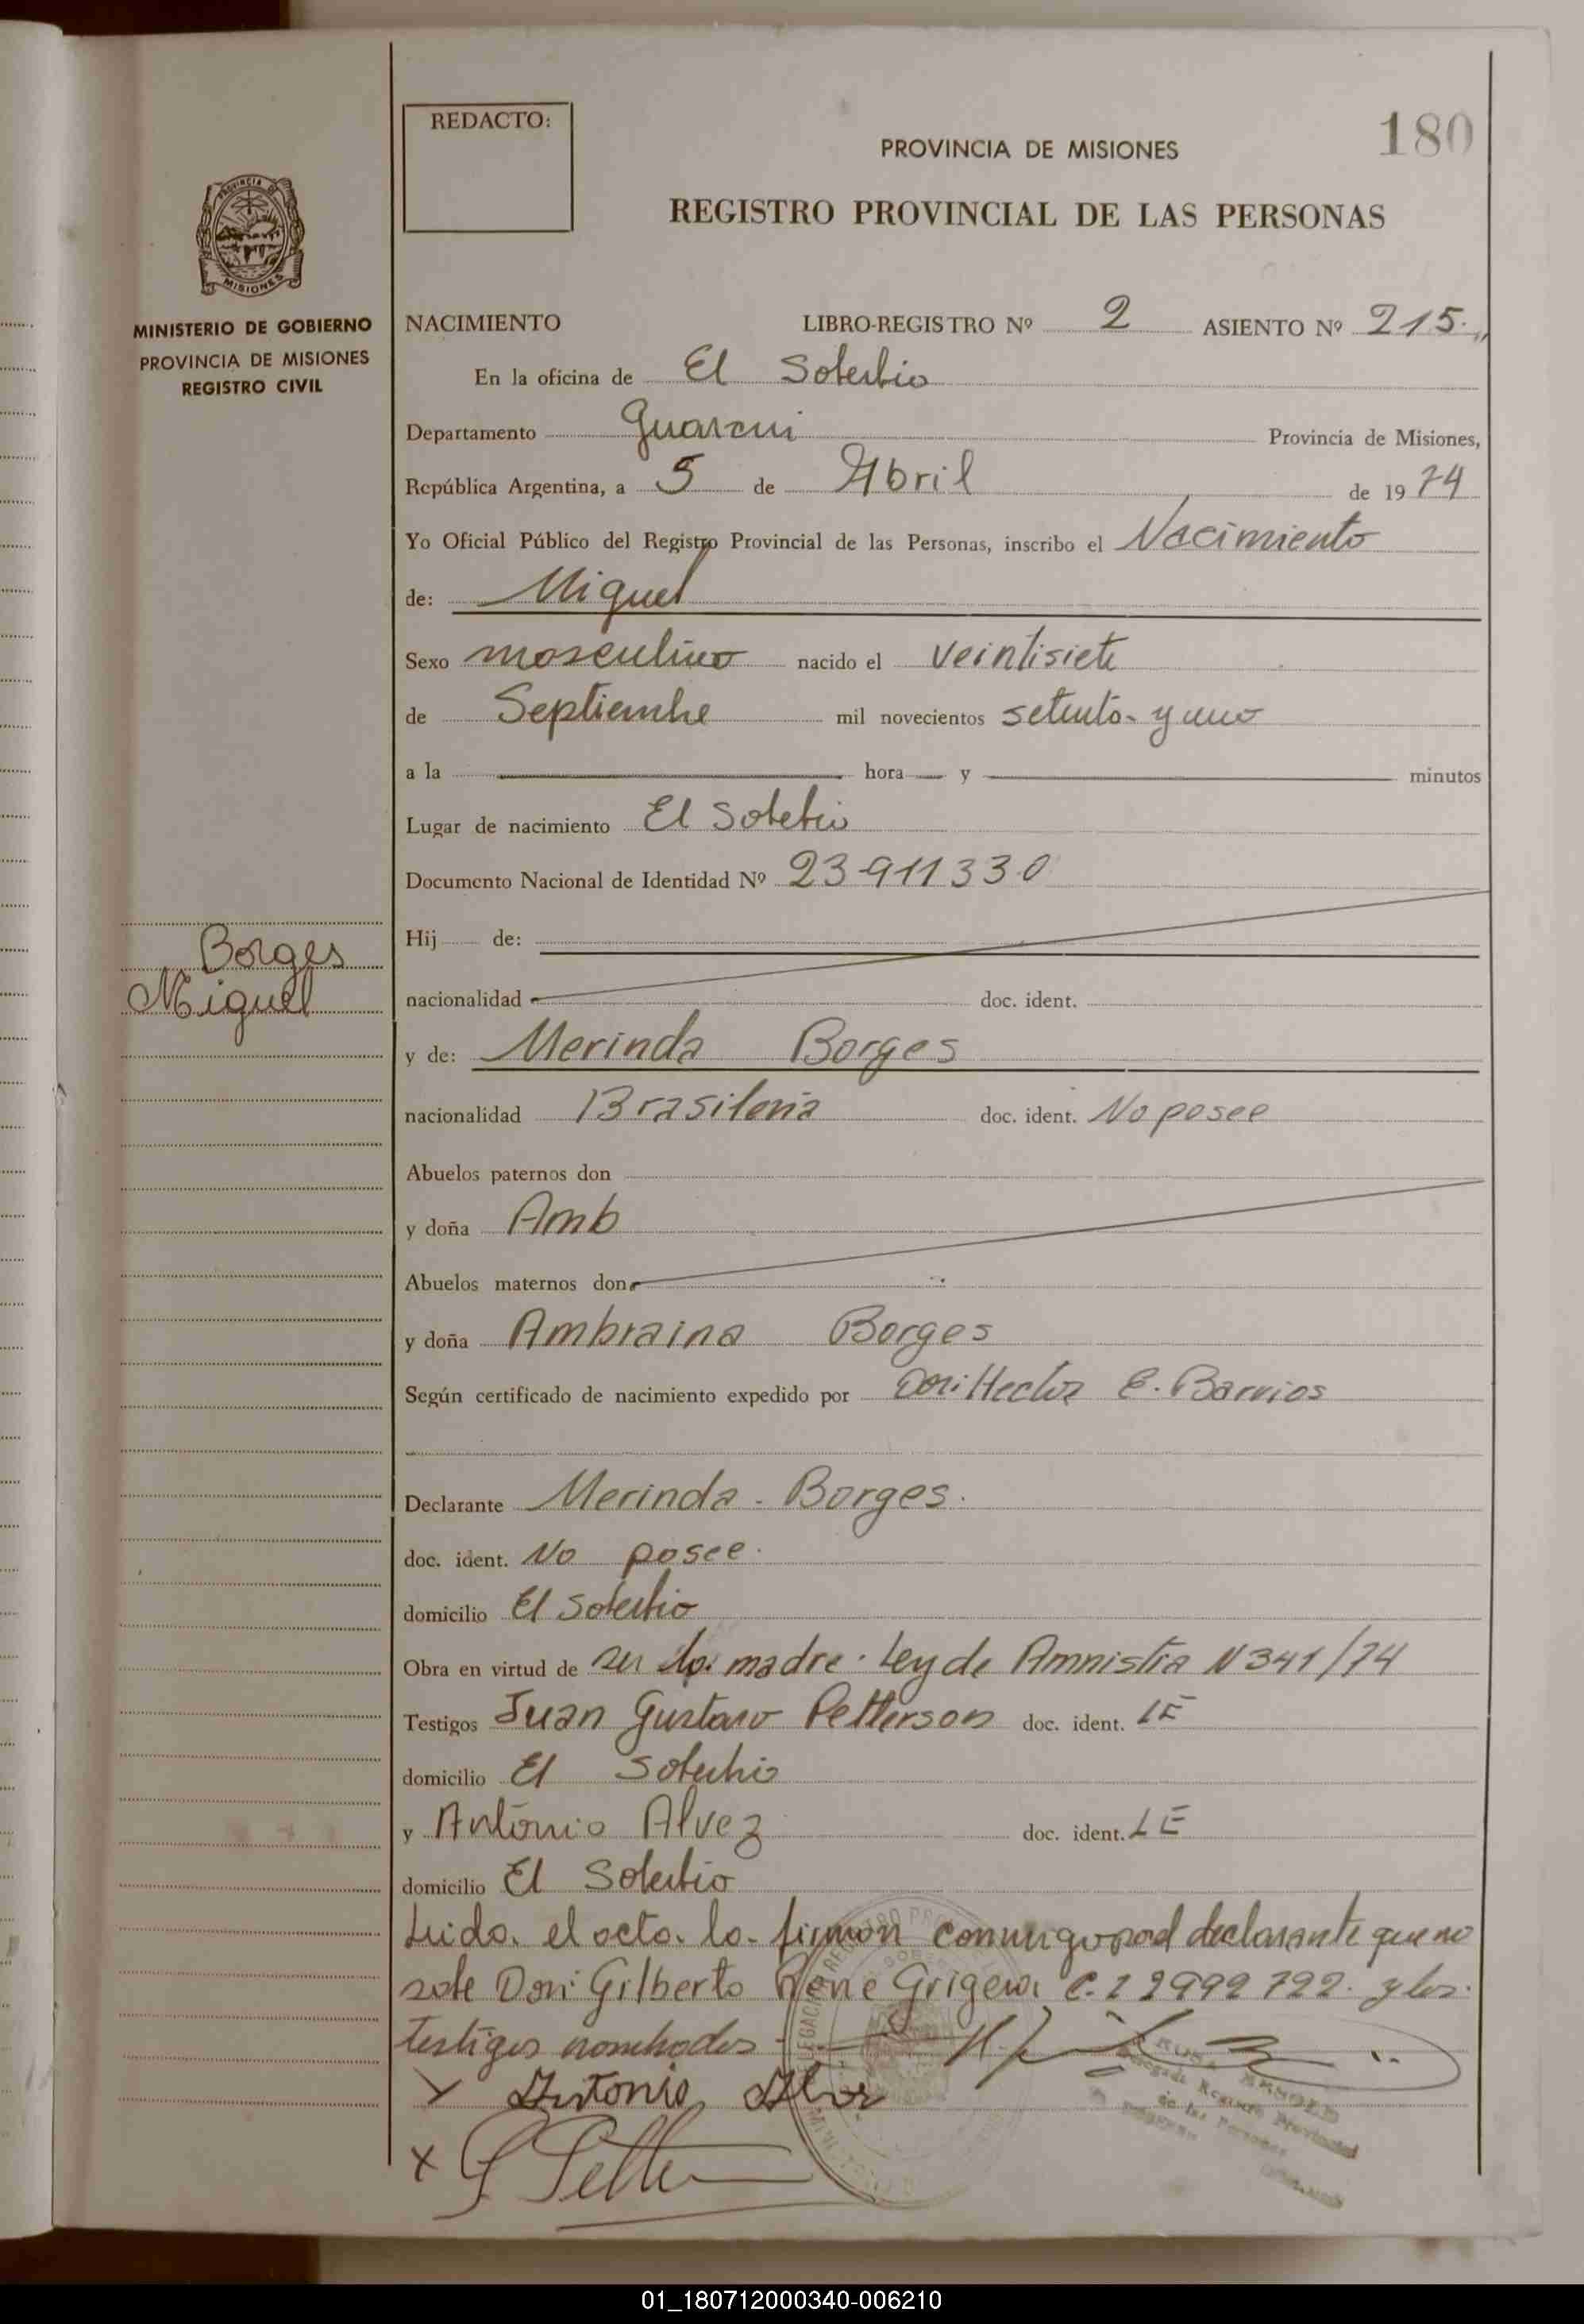 REDACTO:
180
PROVINCIA DE MISIONES
REGISTRO PROVINCIAL DE LAS PERSONAS
PROVINCIA DE
MISIONES
MINISTERIO DE GOBIERNO
PROVINCIA DE MISIONES
REGISTRO CIVIL
NACIMIENTO LIBRO-REGISTRO Nº 2 ASIENTO Nº 215
En la oficina de El Soberbio
Departamento Guarani Provincia de Misiones,
República Argentina, a 5 de Abril de 1974
Yo Oficial Público del Registro Provincial de las Personas, inscribo el Nacimiento
de: Miguel
Sexo masculino nacido el veintisiete
de Septiembre mil novecientos setenta y uno
a la hora y minutos
Lugar de nacimiento El Soberbio
Documento Nacional de Identidad Nº 23911330
Hij de:
Borges
Miguel
nacionalidad doc. ident.
y de: Merinda Borges
nacionalidad Brasileña doc. ident. No posee
Abuelos paternos don
y doña Amb
Abuelos maternos don
y doña Ambraina Borges
Según certificado de nacimiento expedido por Don: Hector E. Barrios
Declarante Merinda - Borges.
doc. ident. No posee.
domicilio El Soberbio
Obra en virtud de ser la madre. Ley de Amnistia N 341/74
Testigos Juan Gustavo Petterson doc. ident. LE
domicilio El Soberbio
y Antonio Alvez doc. ident. LE
domicilio El Soberbio
Leida el acta la firman conmigo declarante que no
sabe Don: Gilberto Rene Grigera C.I 2992722. y los
testigos nombrados
Antonio
01_180712000340-006210